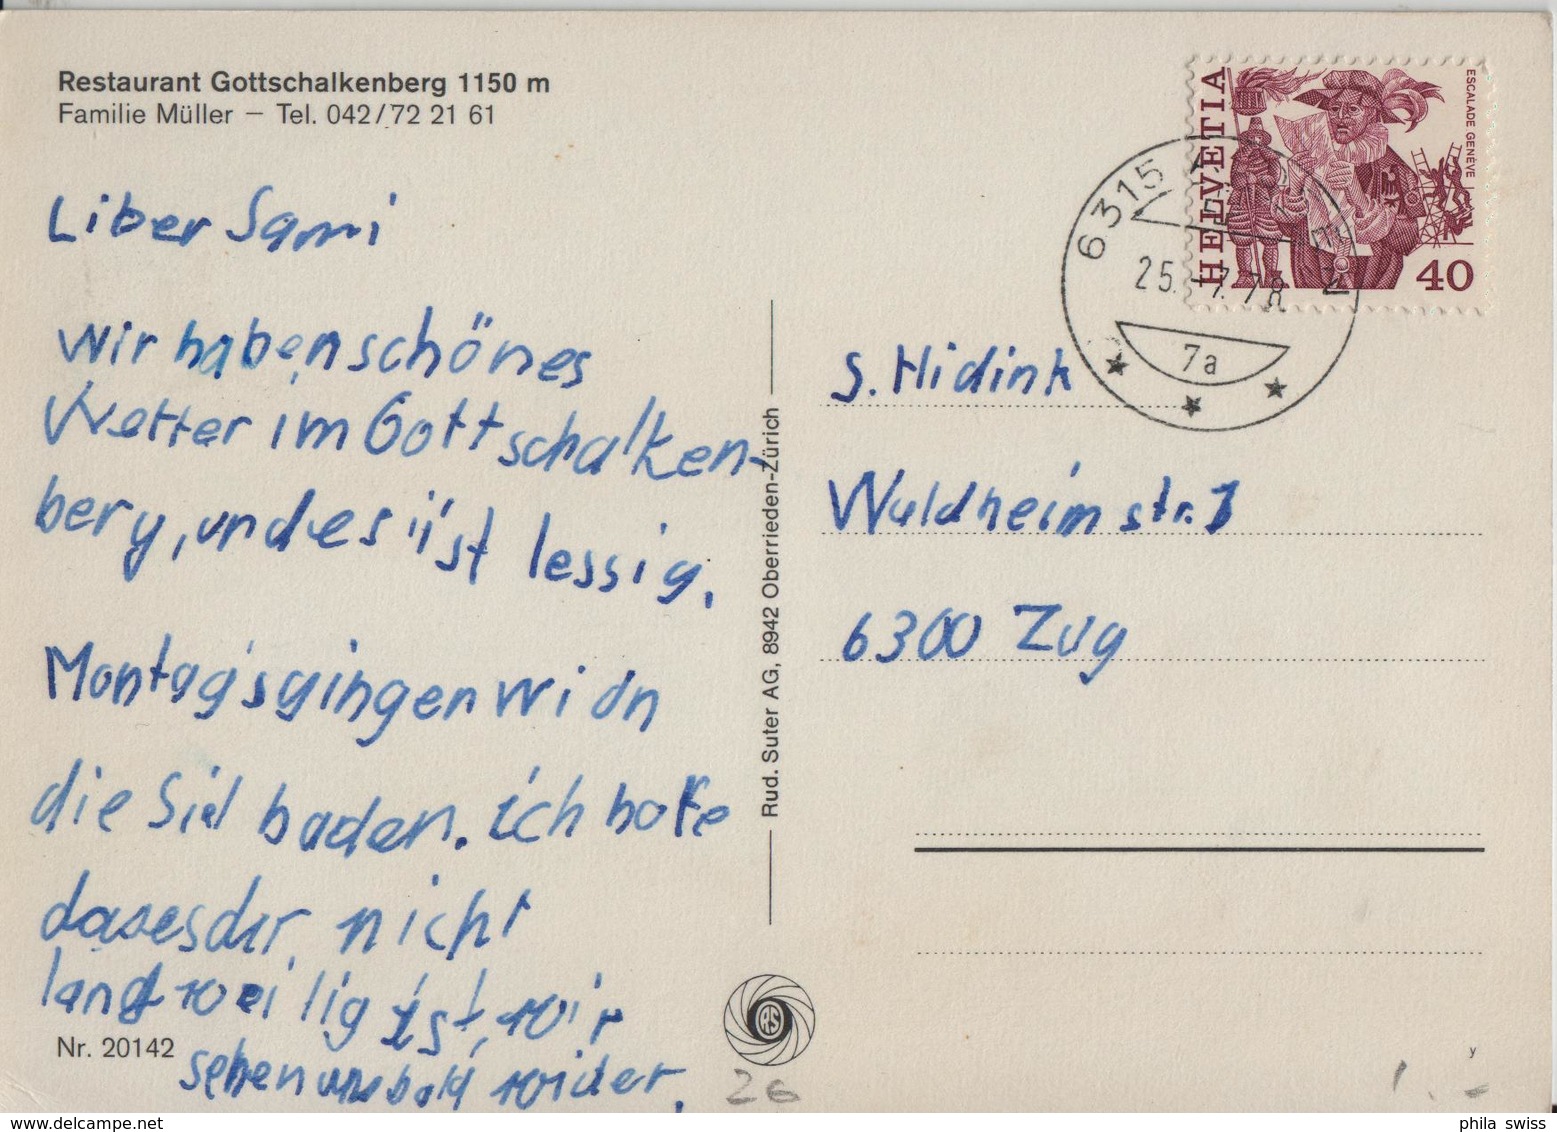 Restaurant Gottschalkenberg 1150 m
Familie Müller – Tel. 042/72 21 61
Liber Sami
wir haben schönes
Wetter im Gottschalken-
berg, und es iist lessig.
Montag's gingen wi on
die Siel baden. ich hoffe
das es dir nicht
langweilig ist, wir
sehen uns bald wider.
Nr. 20142
Rud. Suter AG, 8942 Oberrieden-Zürich
RS
HELVETIA
ESCALADE GENEVE
40
6315
25.-7.78
7a
S. Hidink
Waldheimstr. 1
6300 Zug
y
26
phila swiss